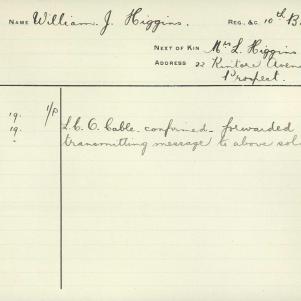 NAME William J. Higgins. REG. &C. 10th B
NEXT OF KIN Mrs L. Higgins
ADDRESS 22 Kintore Aven
Prospect.
19. 1/P L.C.O. Cable confirmed forwarded
19. transmitting message to above sol